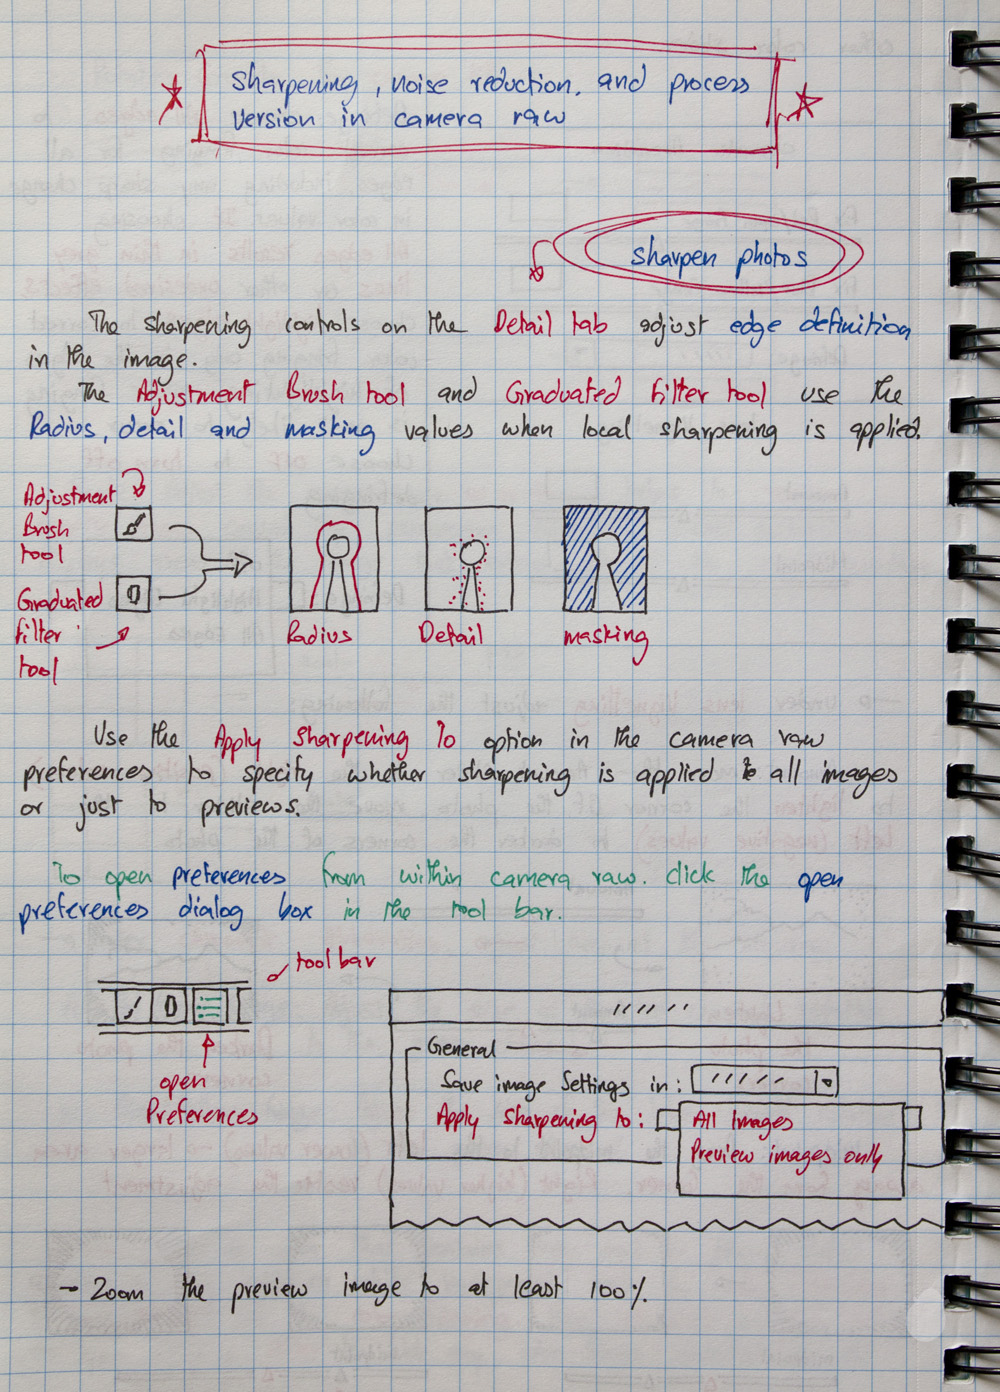 sharpening, noise reduction, and process
version in camera raw
sharpen photos
The sharpening controls on the Detail tab adjust edge definition
in the image.
The Adjustment Brush tool and Graduated filter tool use the
Radius, detail and masking values when local sharpening is applied.
Adjustment
Brush
tool
Graduated
filter
tool
Radius
Detail
masking
Use the Apply sharpening To option in the camera raw
preferences to specify whether sharpening is applied to all images
or just to previews.
To open preferences from within camera raw. click the open
preferences dialog box in the tool bar.
tool bar
open
Preferences
General
Save image Settings in:
Apply sharpening to:
All Images
Preview images only
- Zoom the preview image to at least 100%